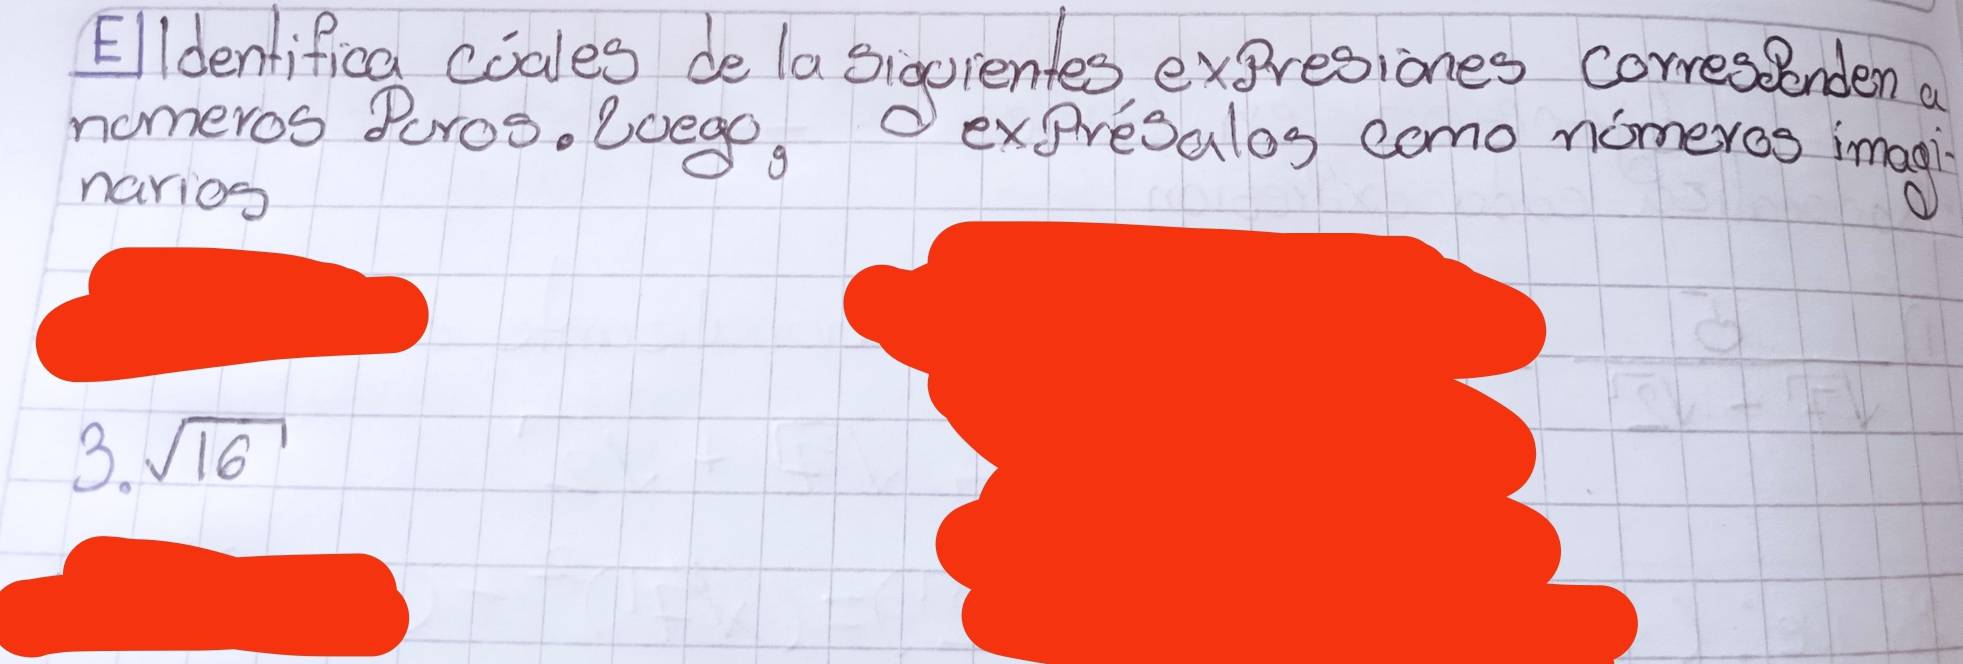 E Identifica cúales de la siguientes expresiones corresponden a
números Puros. Luego, exprésalos como números imagi-
narios
3. √16